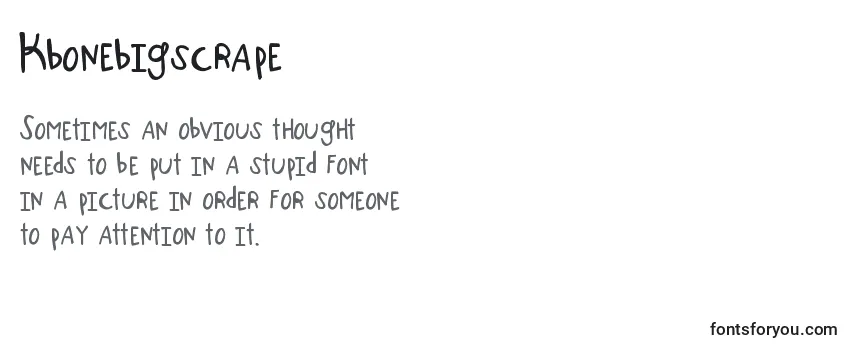 Kbonebigscrape
Sometimes an obvious thought
needs to be put in a stupid font
in a picture in order for someone
to pay attention to it.
fontsforyou.com